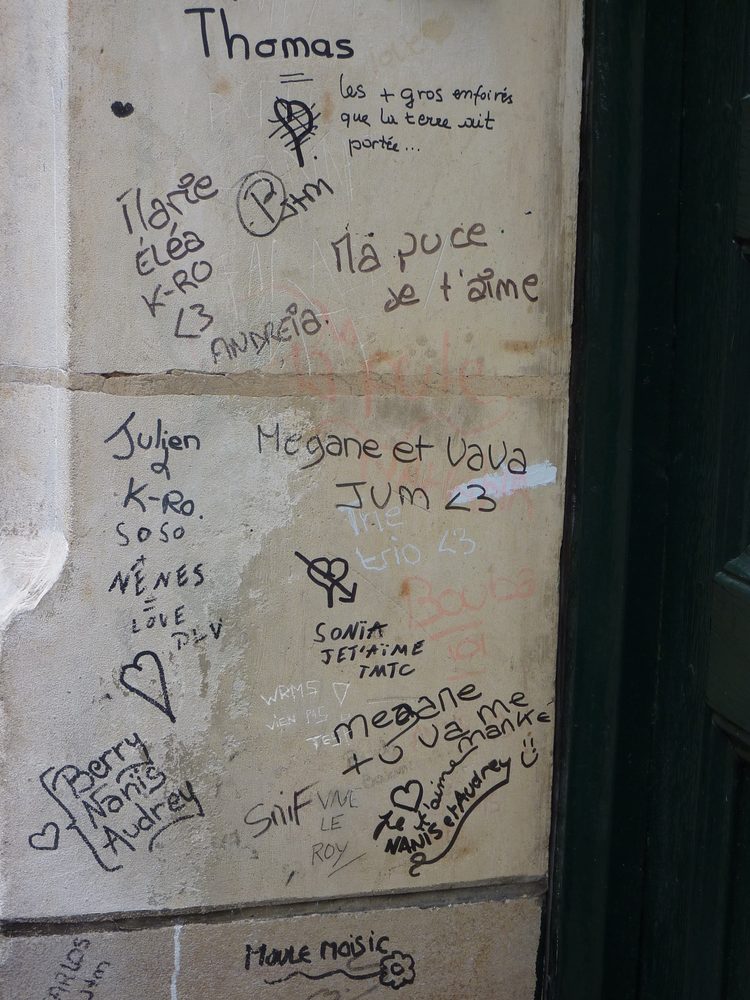 Thomas
=
les + gros enfoirés
que la terre ait
portée...
Marie
Éléa
K-RO
<3
Jtm
Ma puce
Je t'aime
ANDREiA.
Julien
K-Ro.
SOSO
+
NÉNES
=
LOVE
DLV
Megane et VaVa
JVM <3
The
trio <3
Bouba
SONiA
JET'AiME
TMTC
megane
tu va me
manke
Berry
Nanis
Audrey
SniF
VIVE
LE
ROY
Je t'aime
NANIS et Audrey
MOULE MOISIC
CARLOS
Jtm